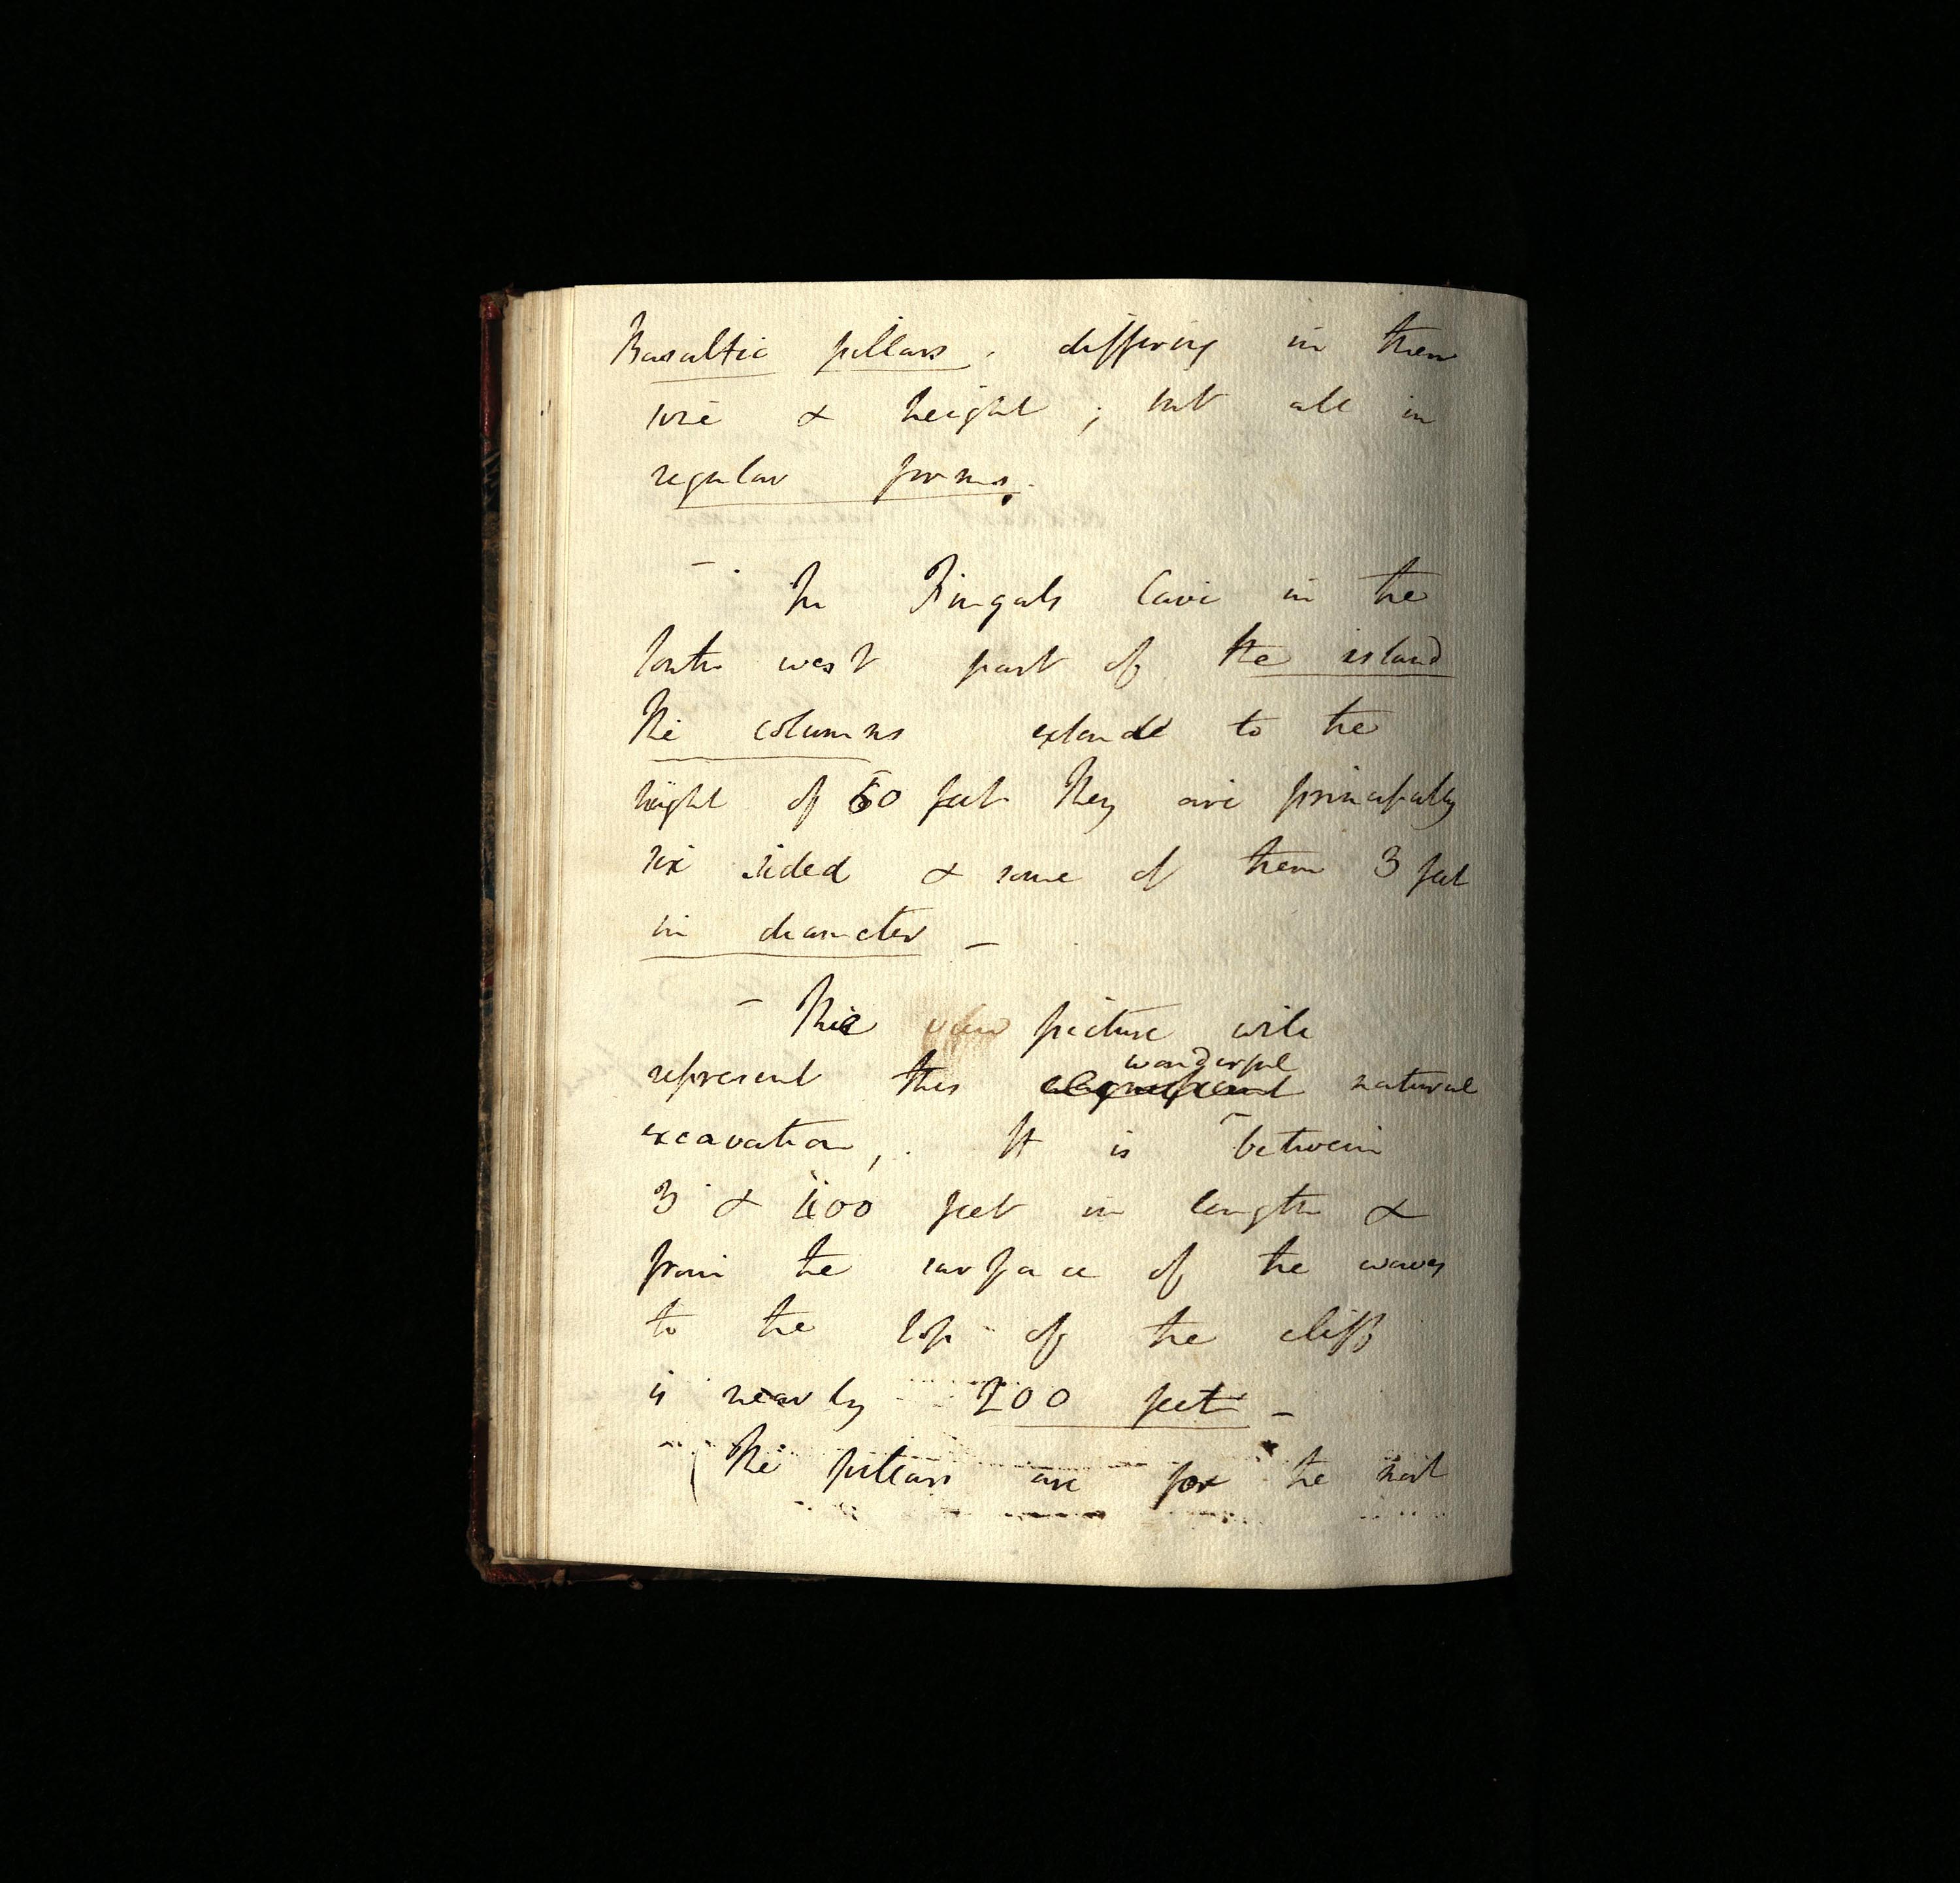 Basaltic pillars, differing in their
size & height; but all in
regular forms.
- In Fingals Cave in the
South west part of the island
The columns extende to the
height of 60 feet They are principally
six sided & some of them 3 feet
in diameter -
- This view picture will
represent this wonderful magnificent natural
excavation, . It is between
3 & 400 feet in length &
from the surface of the waves
to the top of the cliff
is nearly 200 feet -
(The pillars are for the most